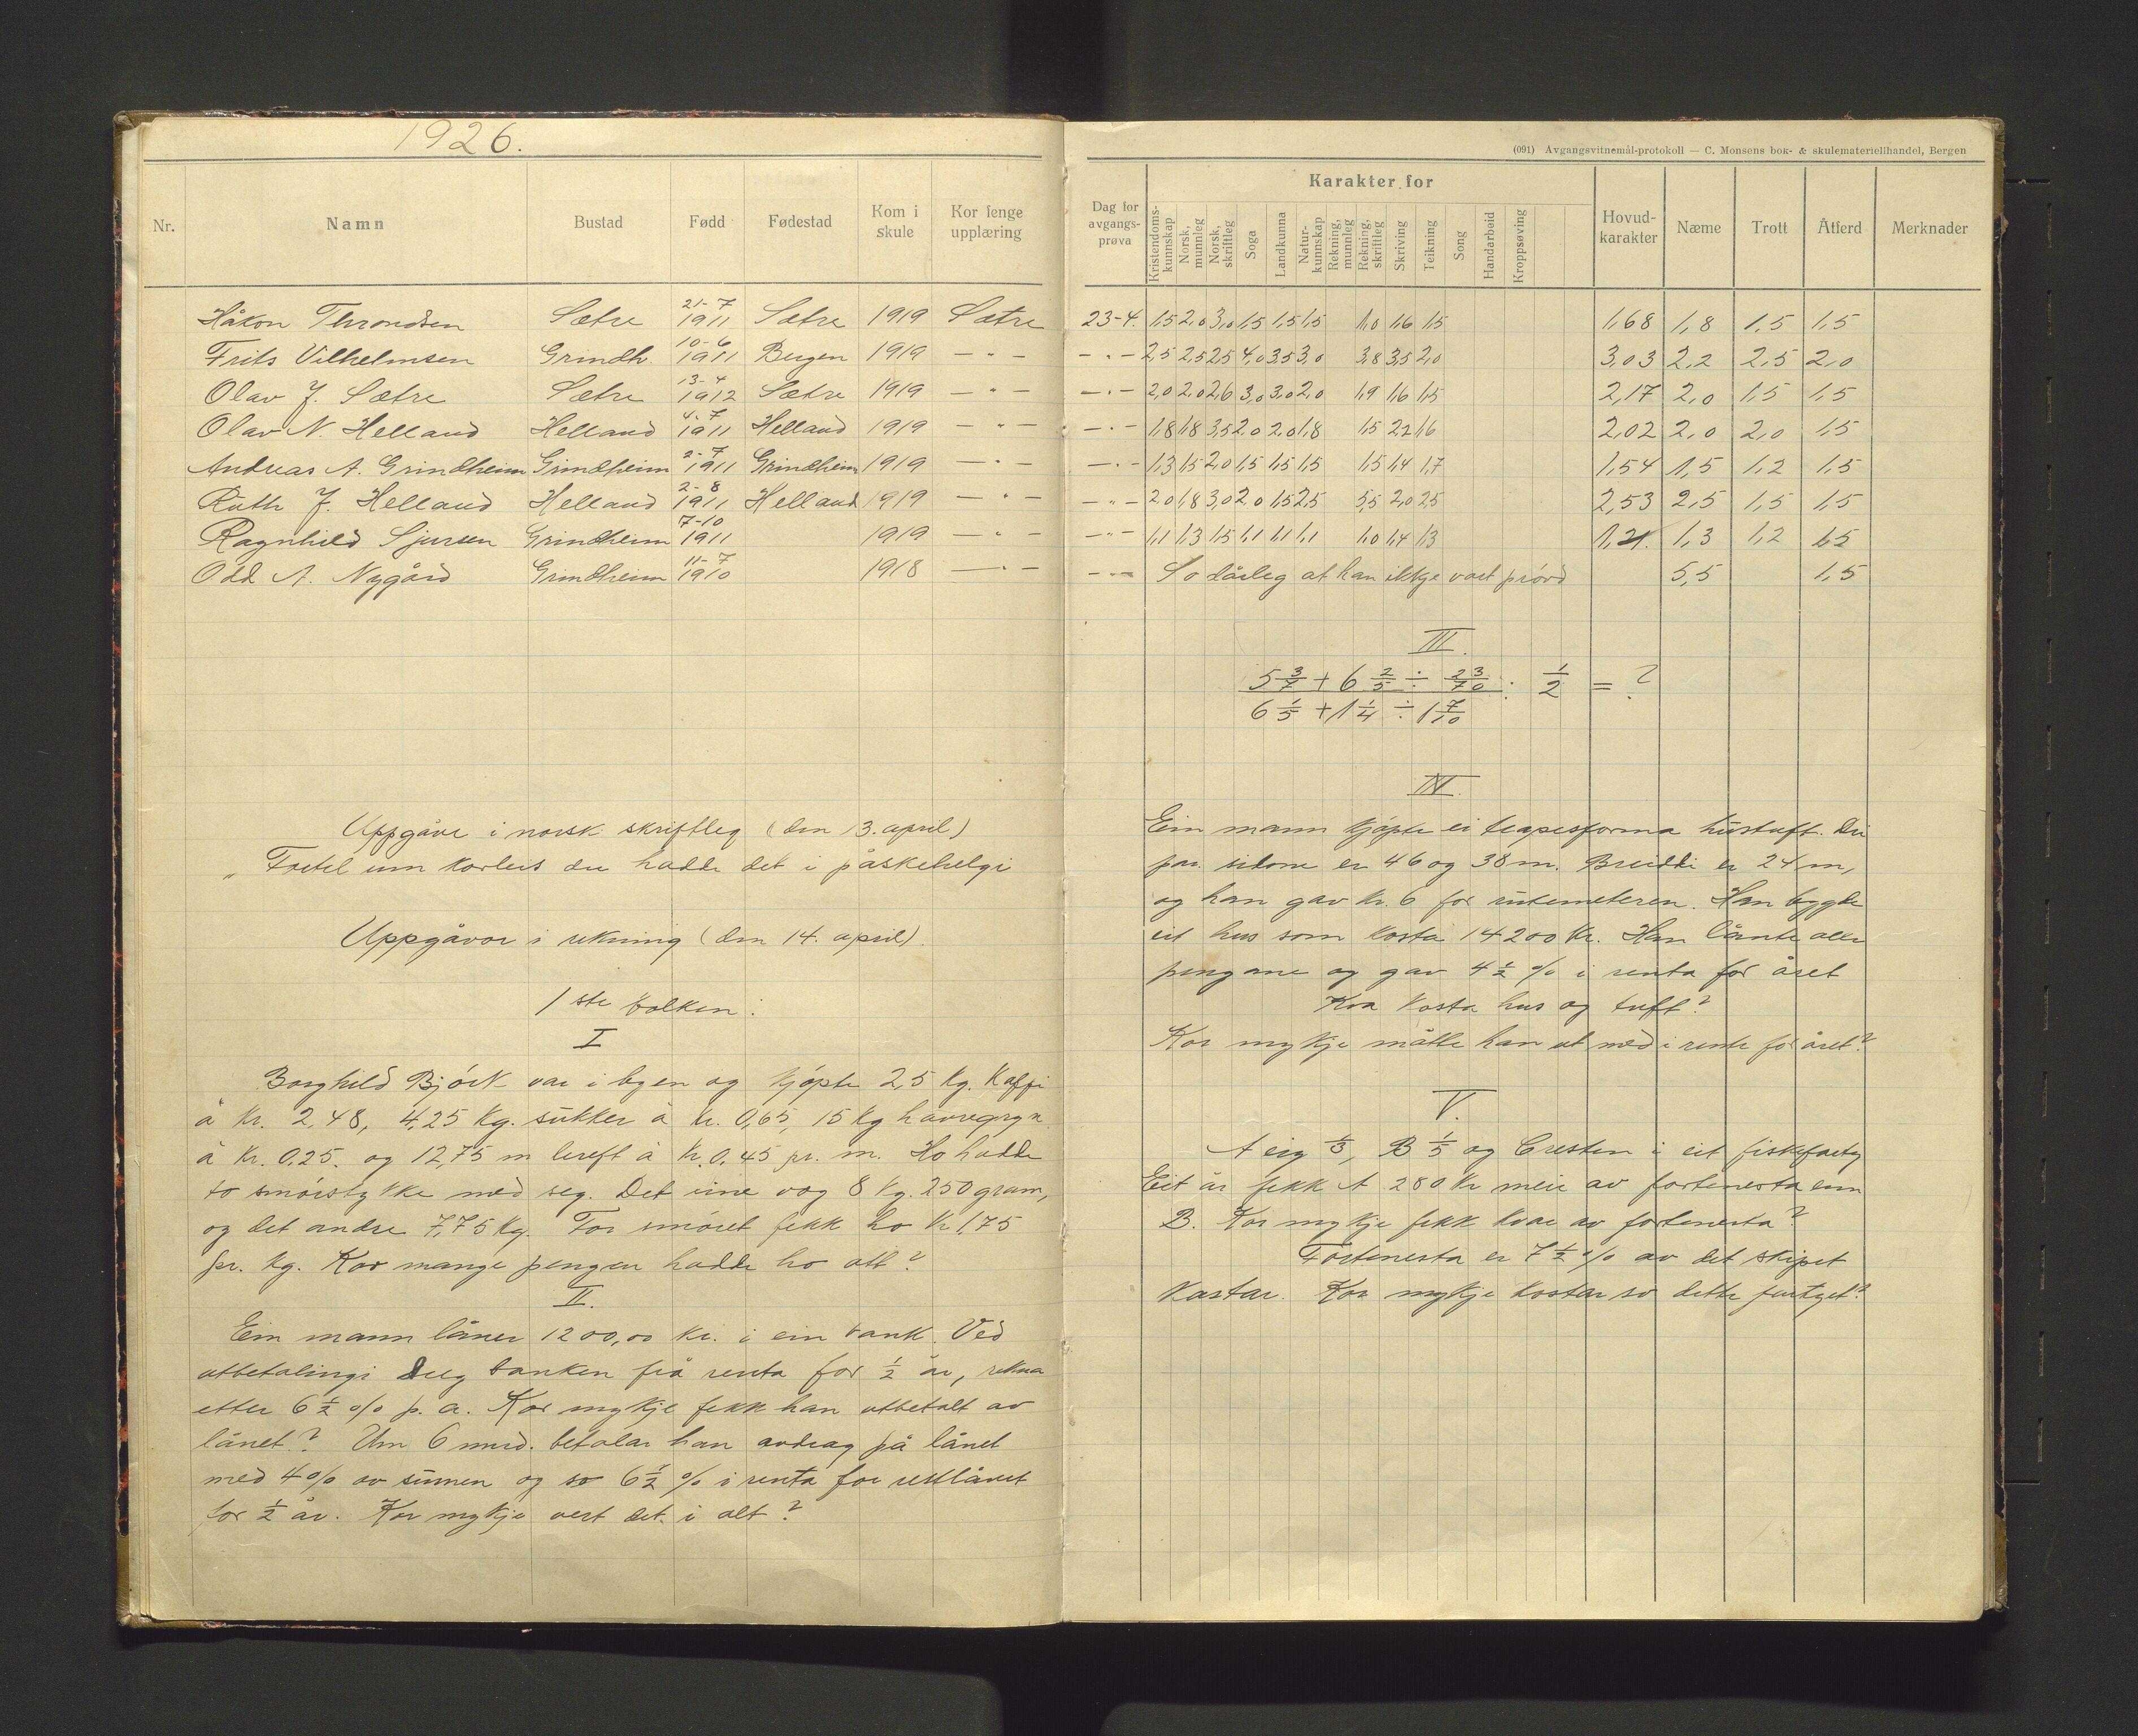 1926.
(091) Avgangsvitnemål-protokoll — C. Monsens bok- & skulemateriellhandel, Bergen
Nr. Namn Bustad Fødd Fødestad Kom i skule Kor fenge upplæring
Dag for avgangs-prøva Karakter for Hovud-karakter Næme Trott Åtferd Merknader
Kristendoms-kunnskap Norsk, munnleg Norsk, skriftleg Soga Landkunna Natur-kunnskap Rekning, munnleg Rekning, skriftleg Skriving Teikning Song Handarbeid Kroppsøving
Håkon Throndsen Sætre 21-7 1911 Sætre 1919 Sætre 23-4. 1,5 2,0 3,0 1,5 1,5 1,5 1,0 1,6 1,5 1,68 1,8 1,5 1,5
Frits Vilhelmsen Grindh. 10-6 1911 Bergen 1919 — " — — " — 2,5 2,5 2,5 4,0 3,5 3,0 3,8 3,5 2,0 3,03 2,2 2,5 2,0
Olav J. Sætre Sætre 13-4 1912 Sætre 1919 — " — — " — 2,0 2,0 2,6 3,0 3,0 2,0 1,9 1,6 1,5 2,17 2,0 1,5 1,5
Olav N. Helland Helland 4-7 1911 Helland 1919 — " — — " — 1,8 1,8 3,5 2,0 2,0 1,8 1,5 2,2 1,6 2,02 2,0 2,0 1,5
Andreas A. Grindheim Grindheim 2-7 1911 Grindheim 1919 — " — — " — 1,3 1,5 2,0 1,5 1,5 1,5 1,5 1,4 1,7 1,54 1,5 1,2 1,5
Ruth J. Helland Helland 2-8 1911 Helland 1919 — " — — " — 2,0 1,8 3,0 2,0 1,5 2,5 5,5 2,0 2,5 2,53 2,5 1,5 1,5
Ragnhild Sjursen Grindheim 7-10 1911 1919 — " — — " — 1,1 1,3 1,5 1,1 1,1 1,1 1,0 1,4 1,3 1,21. 1,3 1,2 1,5
Odd A. Nygård Grindheim 11-7 1910 1918 — " — — " — So dårleg at han ikkje vart prøvd 5,5 1,5
Uppgåve i norsk skriftleg (den 13. april)
„ Fortel um korleis du hadde det i påskehelgi
Uppgåvor i rekning (den 14. april).
1ste bolken:
I
Borghild Bjørk var i byen og kjøpte 2,5 kg. kaffi
à kr. 2,48, 4,25 kg. sukker à kr. 0,65, 15 kg havregryn
à kr. 0,25. og 12,75 m lereft à kr. 0,45 pr. m. Ho hadde
to smørstykke med seg. Det eine vog 8 kg. 250 gram,
og det andre 7,75 kg. For smøret fekk ho kr 1,75
pr. kg. Kor mange pengar hadde ho att?
II.
Ein mann låner 1200,00 kr. i ein bank. Ved
utbetalingi dreg banken frå renta for ½ år, rekna
etter 6½ % p. a. Kor mykje fekk han utbetalt av
lånet? Um 6 mnd. betalar han avdrag på lånet
med 4% av sumen og so 6½ % i renta for restlånet
for ½ år. Kor mykje vert det i alt?
III.
5 3/7 + 6 2/5 ÷ 23/70 : 1/2 = ?
6 1/5 + 1 1/4 ÷ 1 7/10
IV.
Ein mann kjøpte ei trapesforma hustuft. Dei
par. sidone er 46 og 38 m. Breiddi er 24 m,
og han gav kr. 6 for rutemeteren. Han bygde
eit hus som kosta 14200 kr. Han lånte alle
pengane og gav 4½ % i renta for året
Kva kosta hus og tuft?
Kor mykje måtte han ut med i rente for året?
V.
A eig 1/3, B 1/5 og C resten i eit fiskefarty
Eit år fekk A 280 kr meir av fortenesta enn
B. Kor mykje fekk kvar av fortenesta?
Fortenesta er 7½ % av det skipet
kostar. Kor mykje kostar so dette fartyet?